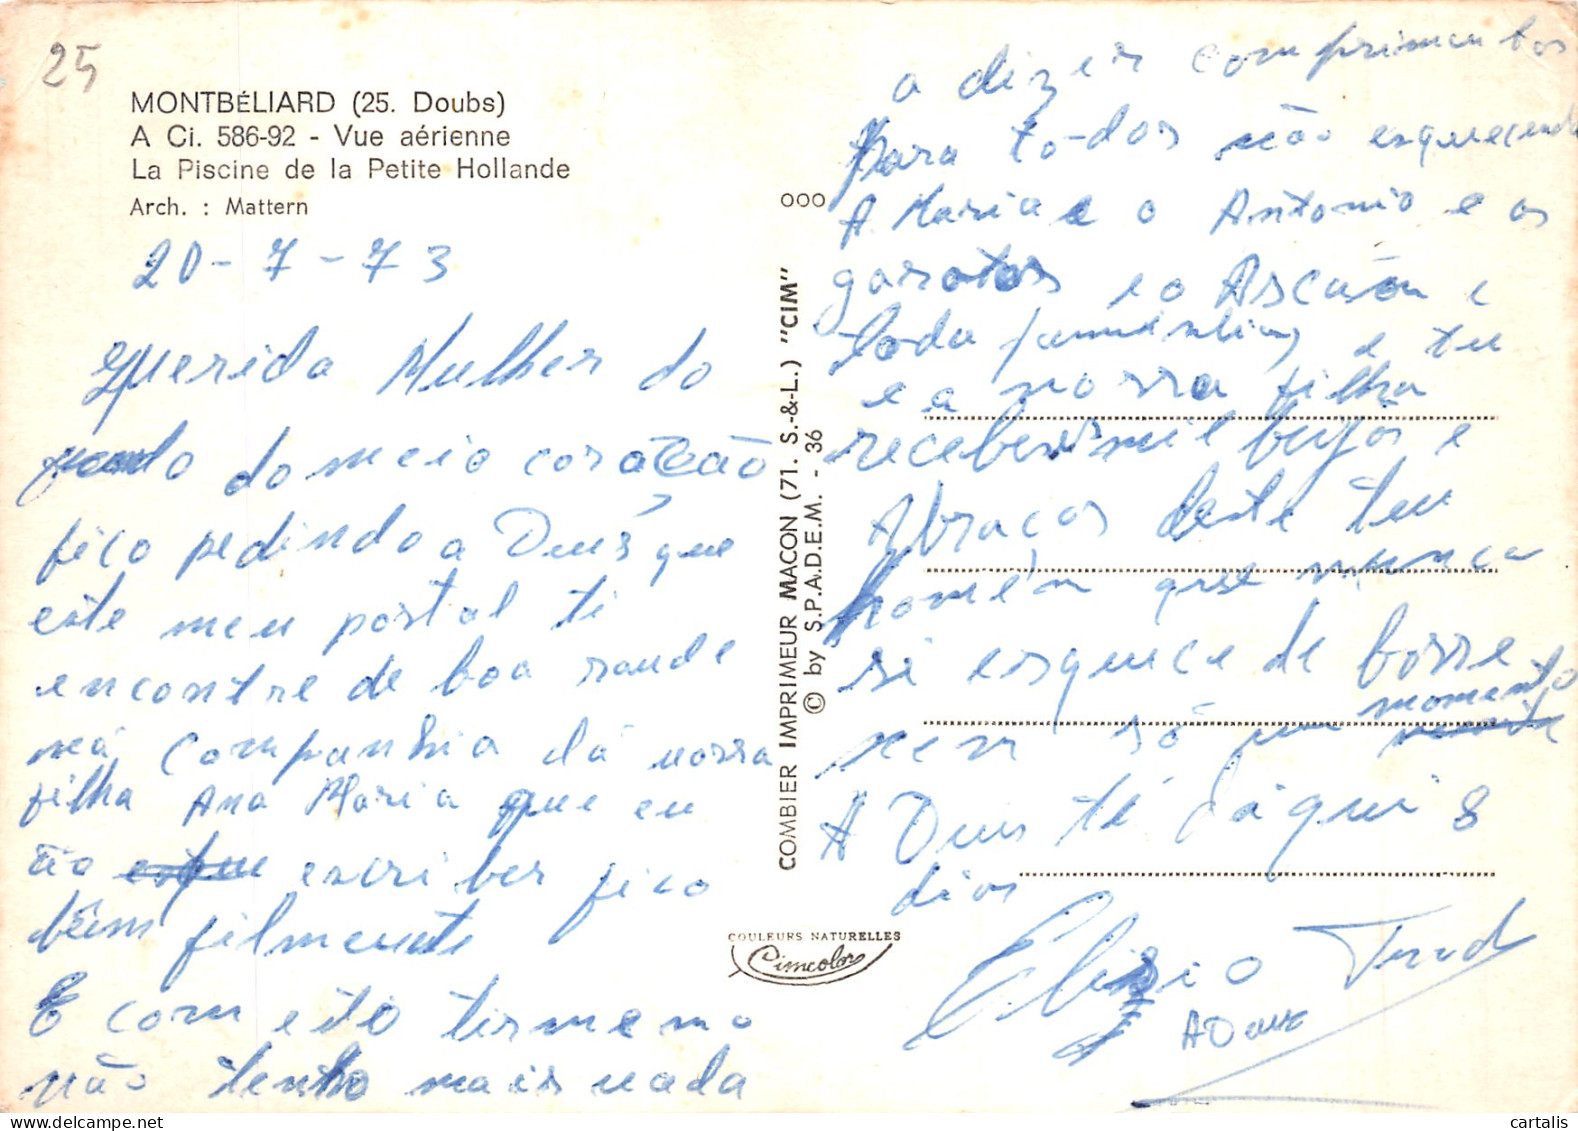 25
MONTBÉLIARD (25. Doubs)
A Ci. 586-92 - Vue aérienne
La Piscine de la Petite Hollande
Arch. : Mattern
20-7-73
Querida Mulher do
do meio coração
fico pedindo a Deus que
este meu postal ti
encontre de boa saude
ná companhia dá nossa
filha Ana Maria que eu
ão escriber fico
bêm filmente
E com esto termemo
não tenho mais nada
COMBIER IMPRIMEUR MACON (71. S.-&-L.) "CIM"
© by S.P.A.D.E.M. - 36
COULEURS NATURELLES
Cimcolor
a dizer comprimentos
Para to-dos não esquecendo
000
A Maria e o Antonio e os
garotos e o Ascenão e
toda e tu
e a nossa filha
receber mil beijos e
Abraços deste teu
homém que nunca
si esquece de
nem só um momento
A Deus té dáqui 8
dias
Elizio
ADeus
cartalis